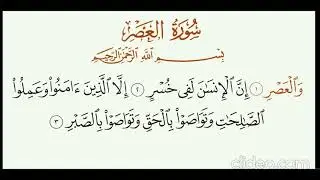 سُورَةُ الْعَصْرِ
بِسْمِ اللَّهِ الرَّحْمَٰنِ الرَّحِيمِ
وَالْعَصْرِ ١ إِنَّ الْإِنسَٰنَ لَفِى خُسْرٍ ٢ إِلَّا الَّذِينَ ءَامَنُوا۟ وَعَمِلُوا۟
الصَّٰلِحَٰتِ وَتَوَاصَوْا۟ بِالْحَقِّ وَتَوَاصَوْا۟ بِالصَّبْرِ ٣
clideo.com